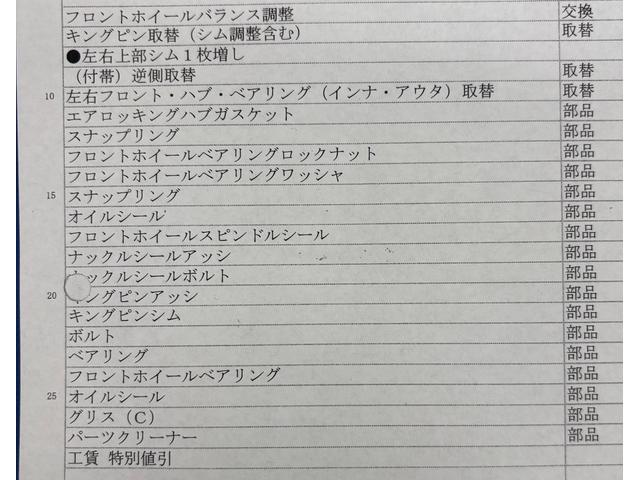 フロントホイールバランス調整 交換
キングピン取替（シム調整含む） 取替
●左右上部シム１枚増し
（付帯）逆側取替 取替
10 左右フロント・ハブ・ベアリング（インナ・アウタ）取替 取替
エアロッキングハブガスケット 部品
スナップリング 部品
フロントホイールベアリングロックナット 部品
フロントホイールベアリングワッシャ 部品
15 スナップリング 部品
オイルシール 部品
フロントホイールスピンドルシール 部品
ナックルシールアッシ 部品
ックルシールボルト 部品
20 ングピンアッシ 部品
キングピンシム 部品
ボルト 部品
ベアリング 部品
フロントホイールベアリング 部品
25 オイルシール 部品
グリス（Ｃ） 部品
パーツクリーナー 部品
工賃 特別値引